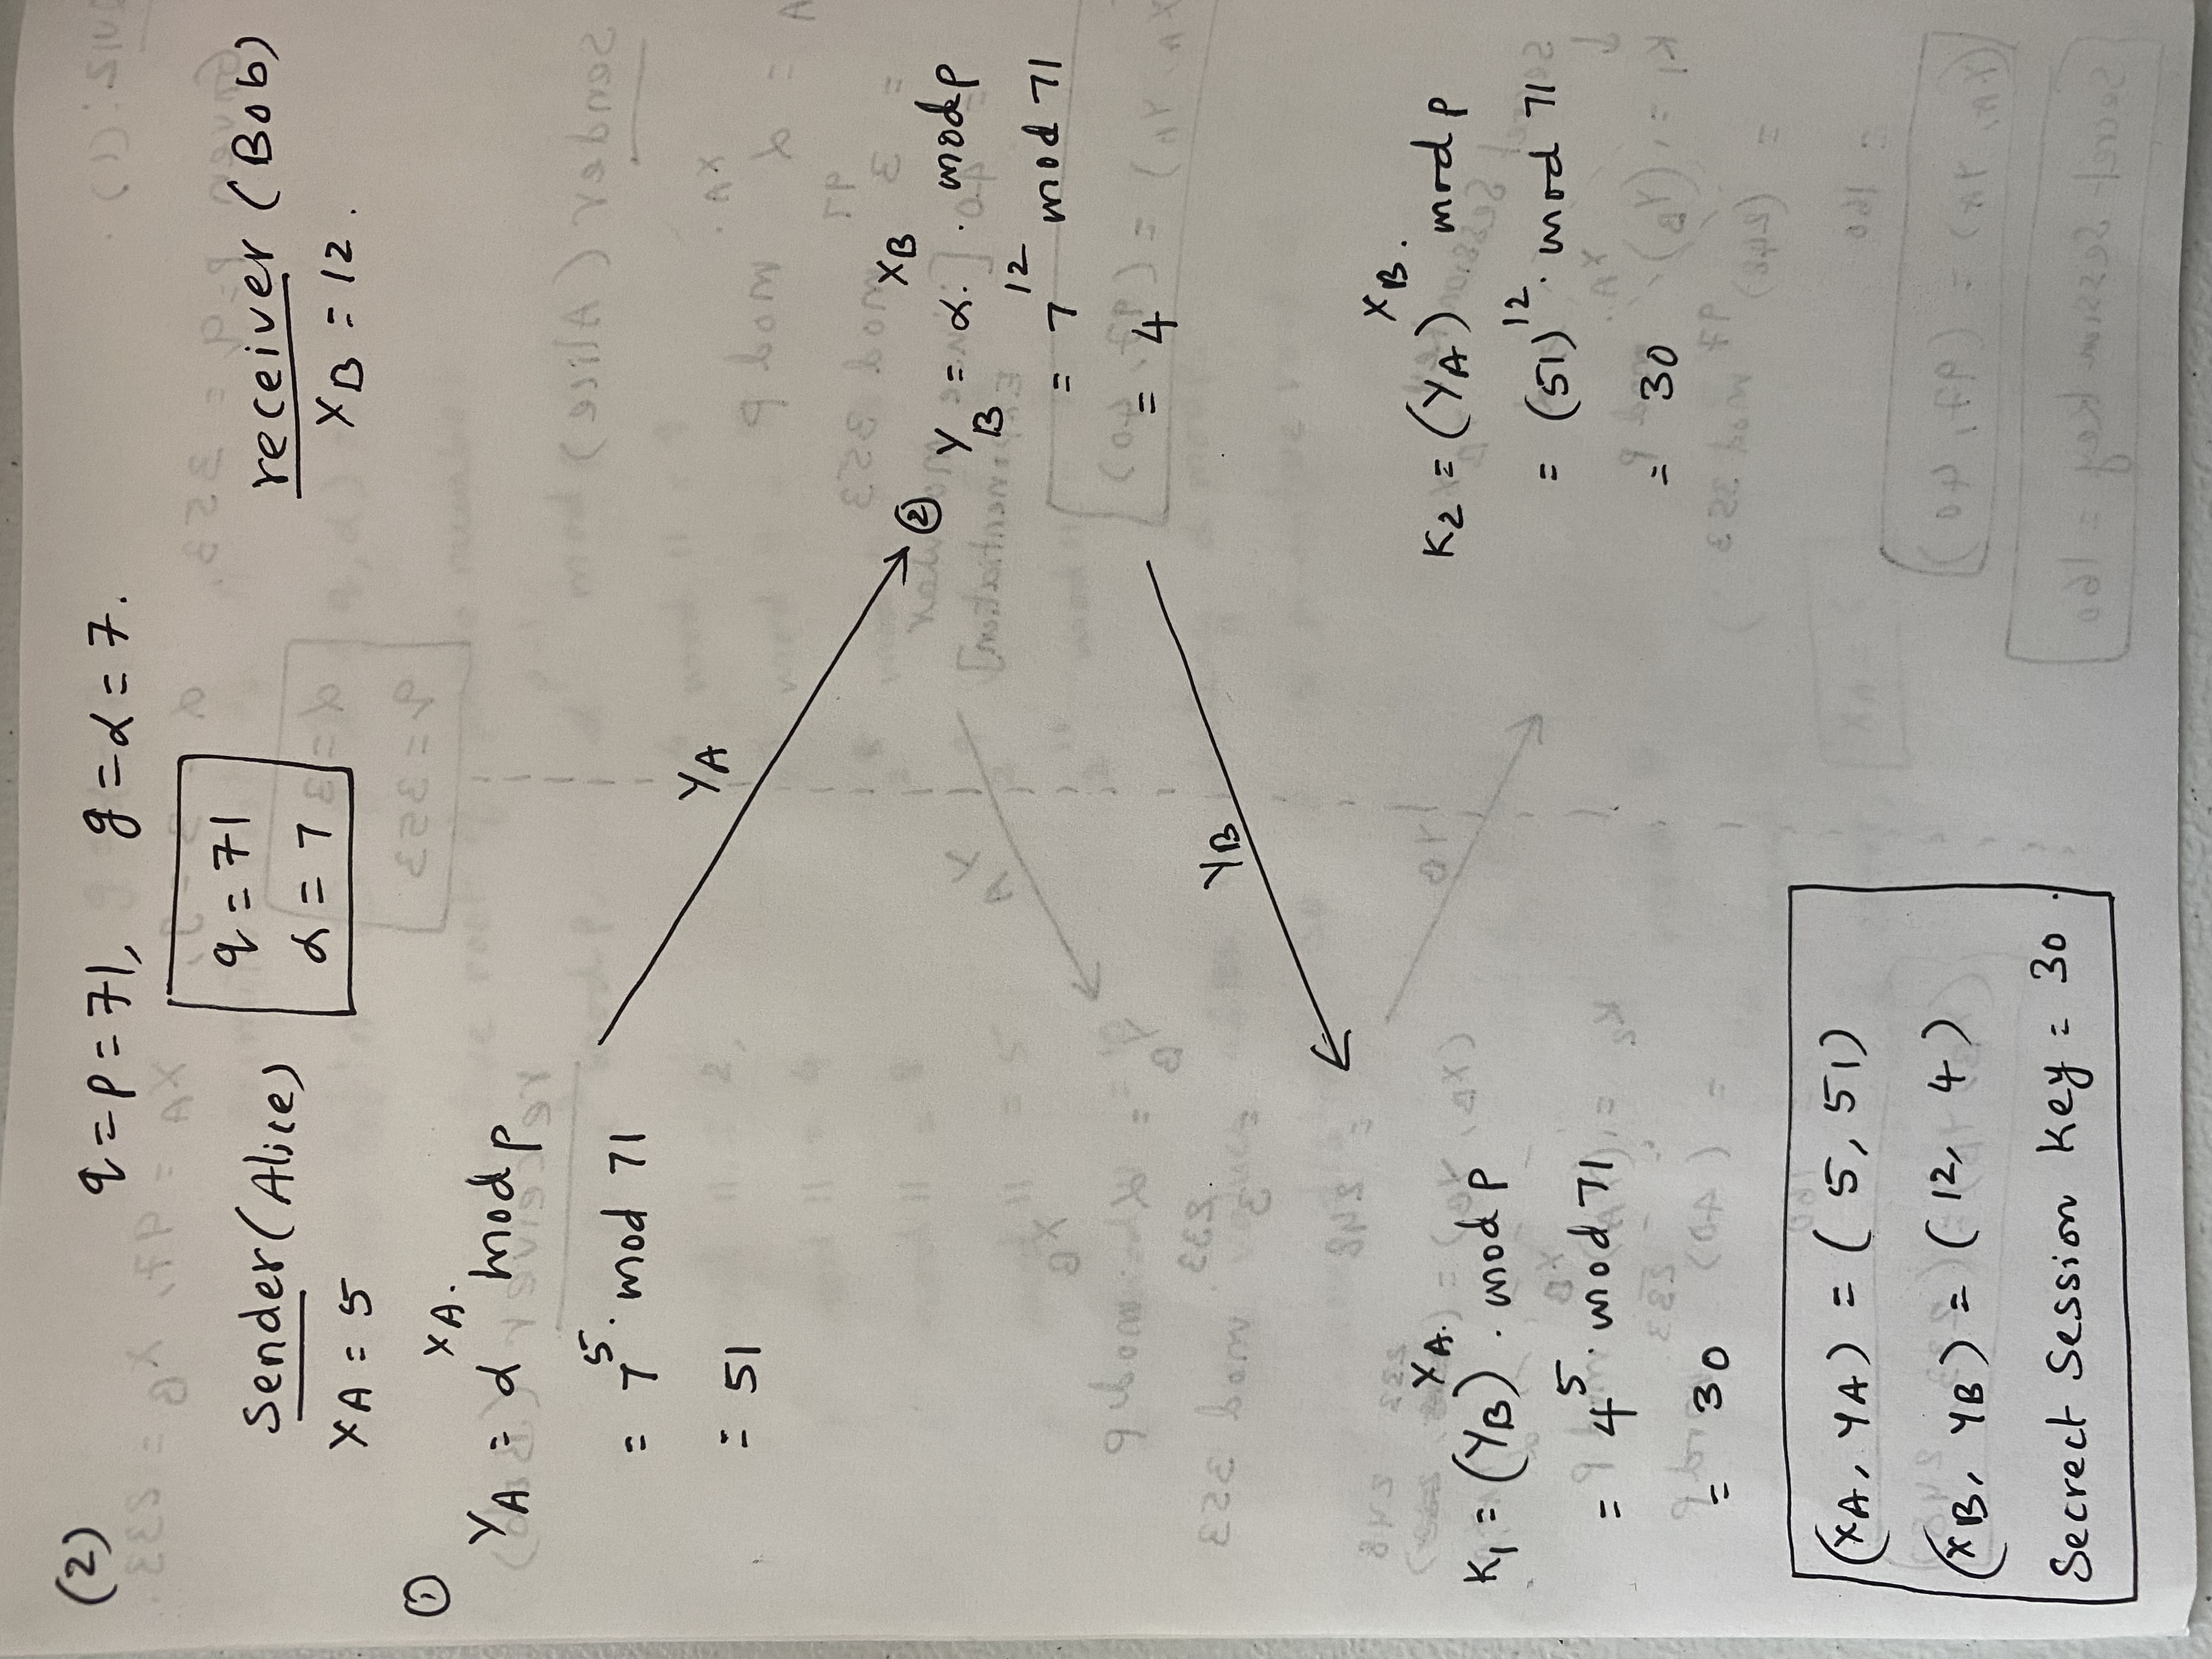 (2)
q = p = 71, g = α = 7.
q = 71
α = 7
Sender (Alice)
XA = 5
receiver (Bob)
XB = 12.
①
YA = α^XA. mod p
= 7^5. mod 71
= 51
YA
②
YB = α.^XB . mod p
= 7^12 mod 71
= 4
YB
K1 = (YB)^XA. . mod p
= 4^5. mod 71
= 30
K2 = (YA)^XB. . mod p
= (51)^12. mod 71
= 30
(XA, YA) = (5, 51)
(XB, YB) = (12, 4)
Secrect Session Key = 30.